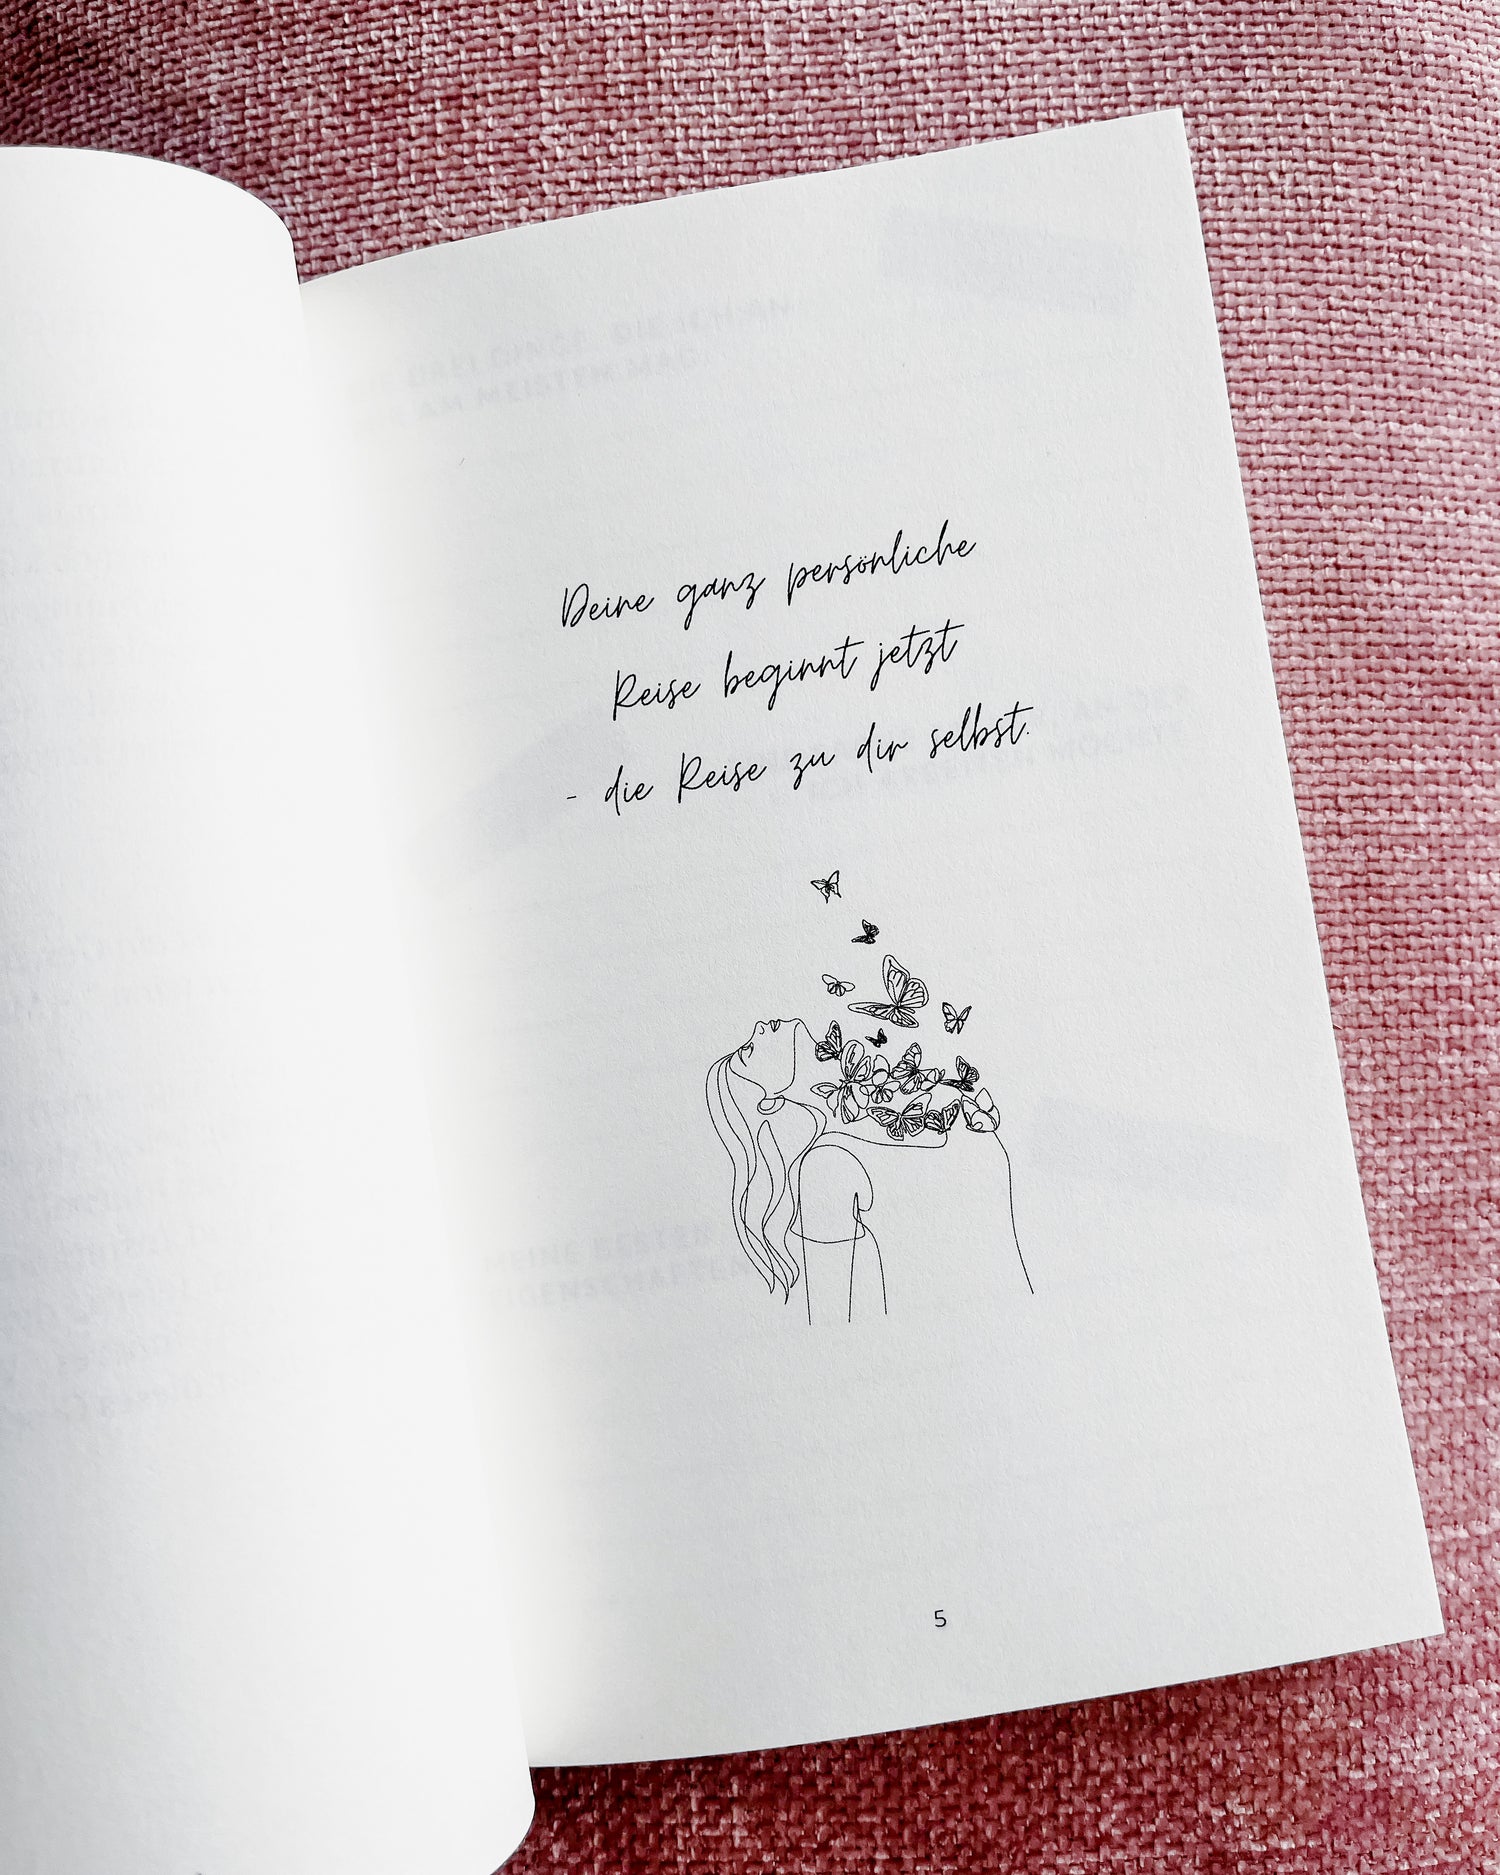 Deine ganz persönliche
Reise beginnt jetzt
- die Reise zu dir selbst.
MEINE BESTEN
EIGENSCHAFTEN
5